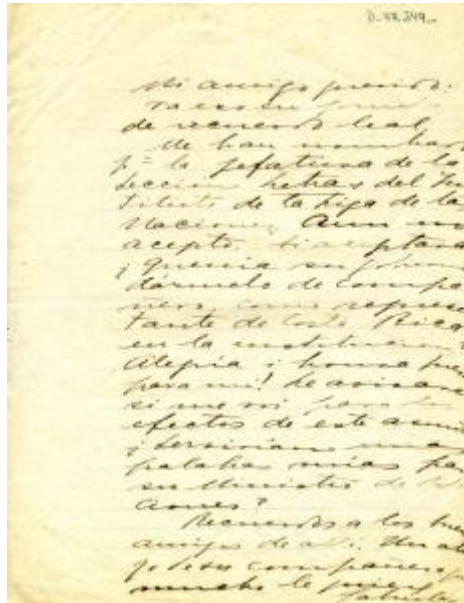 D-77.349
Mi amigo querido:
Va eso en
de recuerdo leal
Me han nombrado
pª la jefatura de la
Sección Letras del Ins
tituto de la Liga de las
Naciones. Aún no
acepto. Si aceptara
¿querría su gobierno
dármelo de compa
ñero, como represen
tante de Costa Rica
en la institución?
Alegría i honra
para mí! Le avisaré
si me voi para los
efectos de este asunto
¿Servirían unas
palabras mías para
su Ministro de
ciones?
Recuerdos a los
amigos de
su compañera
mucho le quiere
Gabriela